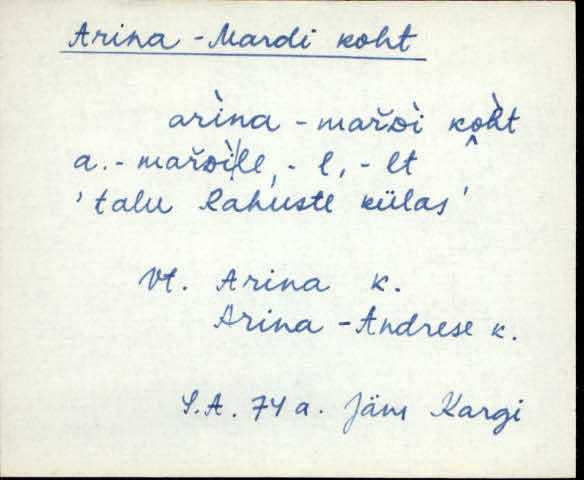 Arina - Mardi koht
arìna - mařdì kòht
a. - mařdìlle, - l, - lt
'talu Rahuste külas'
Vt. Arina k.
Arina - Andrese k.
S.A. 74 a. Jäm Kargi